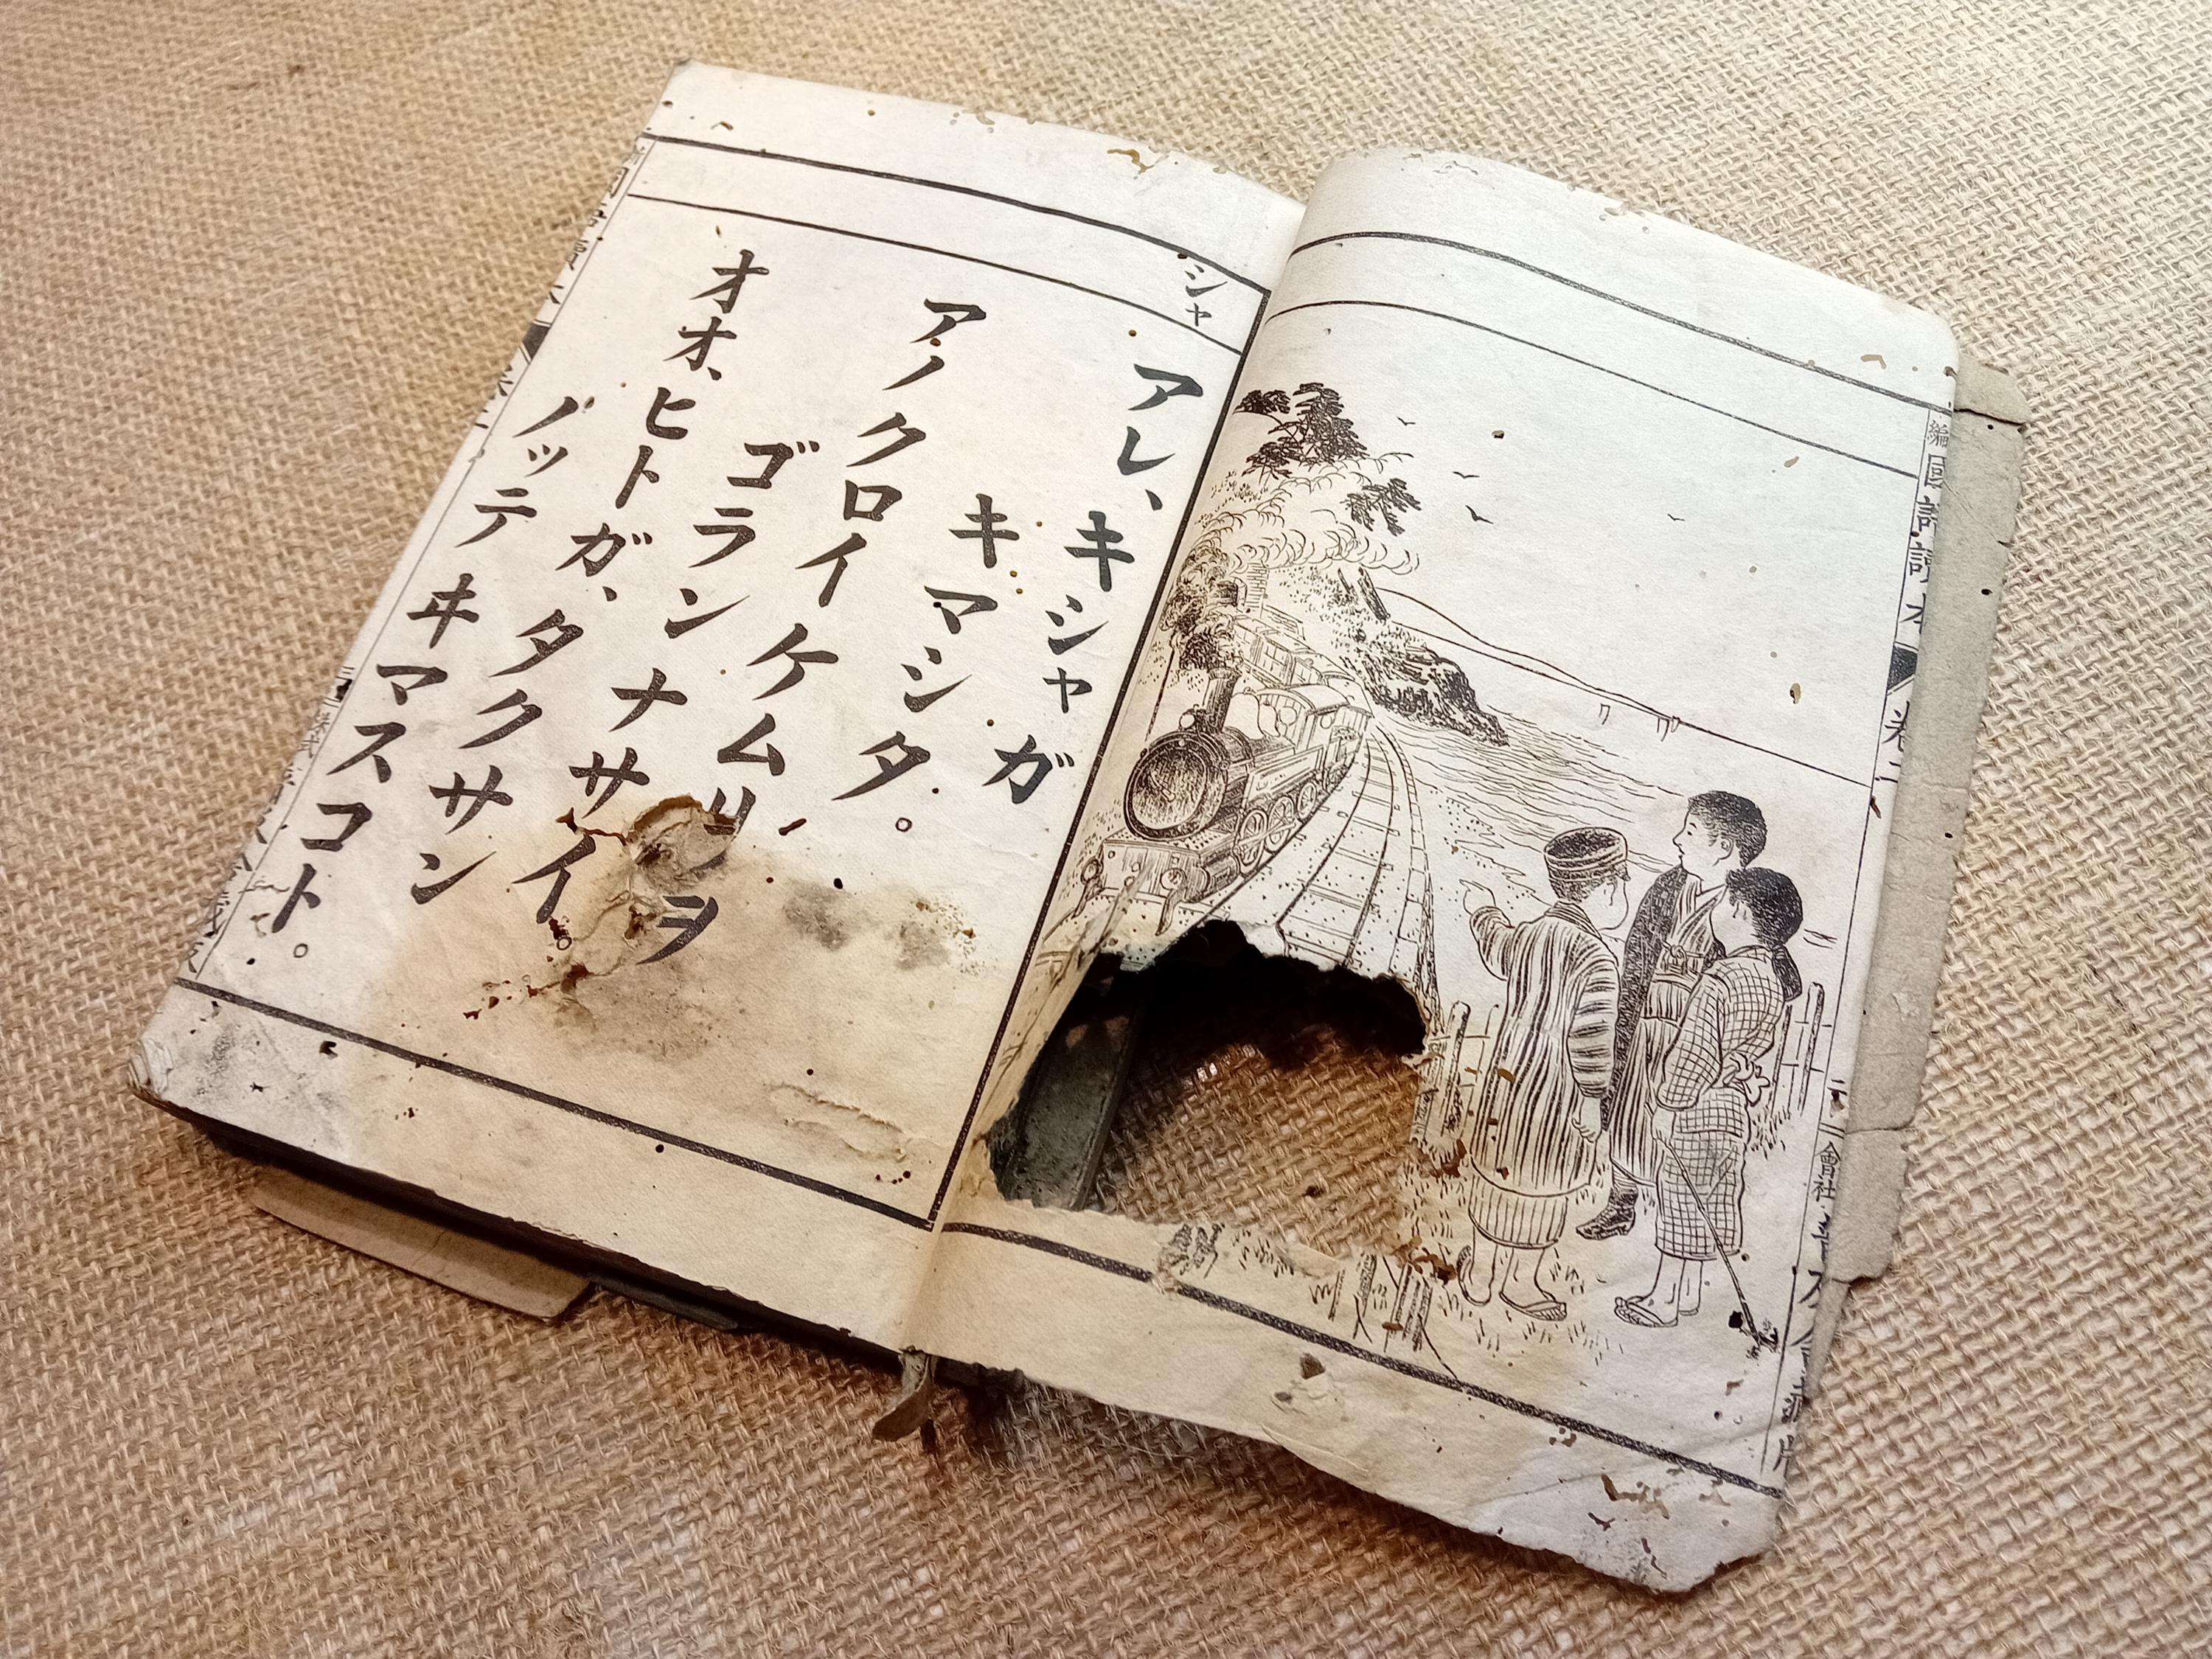 編國語讀本 卷二
會社
シャ
アレ、キシャガ
キマシタ。
アノクロイケムリヲ
ゴランナサイ。
オオ、ヒトガ、タクサン
ノッテヰマスコト。